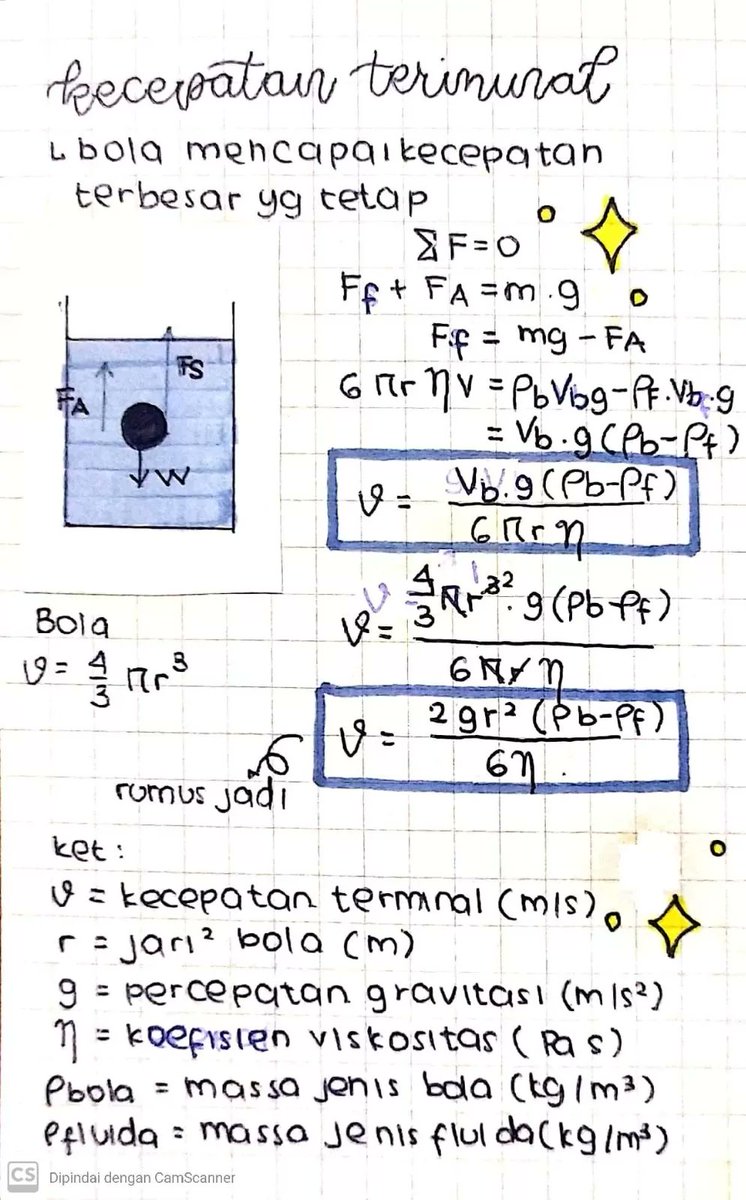 kecepatan terminal
↳ bola mencapai kecepatan
terbesar yg tetap
ΣF = 0
Ff + FA = m . g
Ff = mg - FA
6 πr η v = ρb Vb g - ρf . Vb . g
= Vb . g (ρb - ρf)
v = Vb . g (ρb - ρf) / 6 π r η
FA
FS
W
Bola
v = 4/3 πr³
v = 4/3 πr³² . g (ρb - ρf) / 6 π r η
v = 2 g r² (ρb - ρf) / 6 η .
rumus jadi
ket :
v = kecepatan terminal (m/s)
r = jari² bola (m)
g = percepatan gravitasi (m/s²)
η = koefisien viskositas (Pa s)
ρbola = massa jenis bola (kg/m³)
ρfluida = massa jenis fluida (kg/m³)
CS Dipindai dengan CamScanner